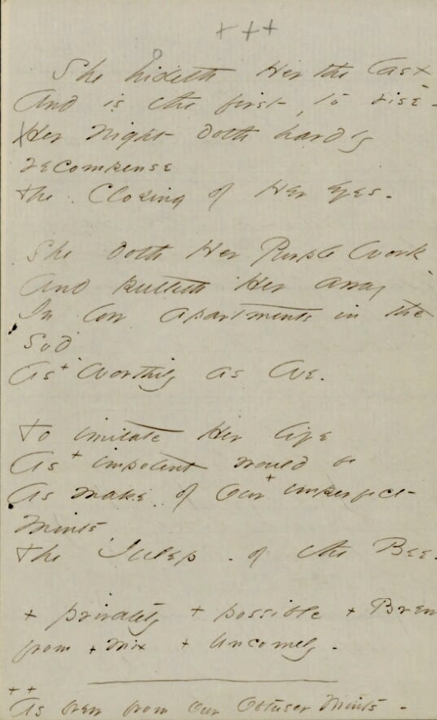 + + +
She hideth Her the last +
And is the first, to rise -
+ Her Night doth hardly
recompense
The Closing of Her eyes -
She doth Her Purple Work
And putteth Her away
In low apartments in the
Sod
As + worthily as We.
To imitate Her life
As + impotent would be
As make - of Our + imperfect -
Mints -
The Julep - of the Bee -
+ privately + possible + Brew
from + mix + uncomely -
+ +
As brew from Our Obtuser Mints -